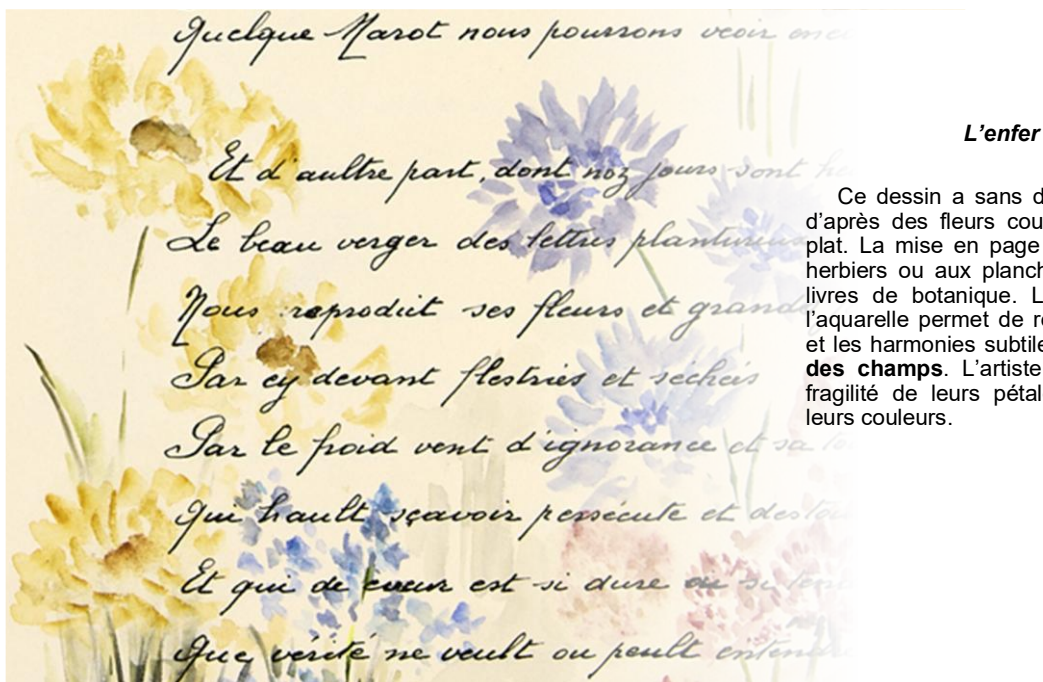 Quelque Marot nous pourrons veoir
Et d'aultre part, dont noz jours sont
Le beau verger des lettres plantureux
Nous reproduit ses fleurs et grand
Par cy devant flestries et seches
Par le froid vent d'ignorance et sa
Qui hault sçavoir persécute et
Et qui de cueur est si dure ou si
Que vérité ne veult ou peult entendre
L'enfer
Ce dessin a sans d
d'après des fleurs cou
plat. La mise en page
herbiers ou aux planch
livres de botanique. L
l'aquarelle permet de r
et les harmonies subtile
des champs. L'artiste
fragilité de leurs pétal
leurs couleurs.